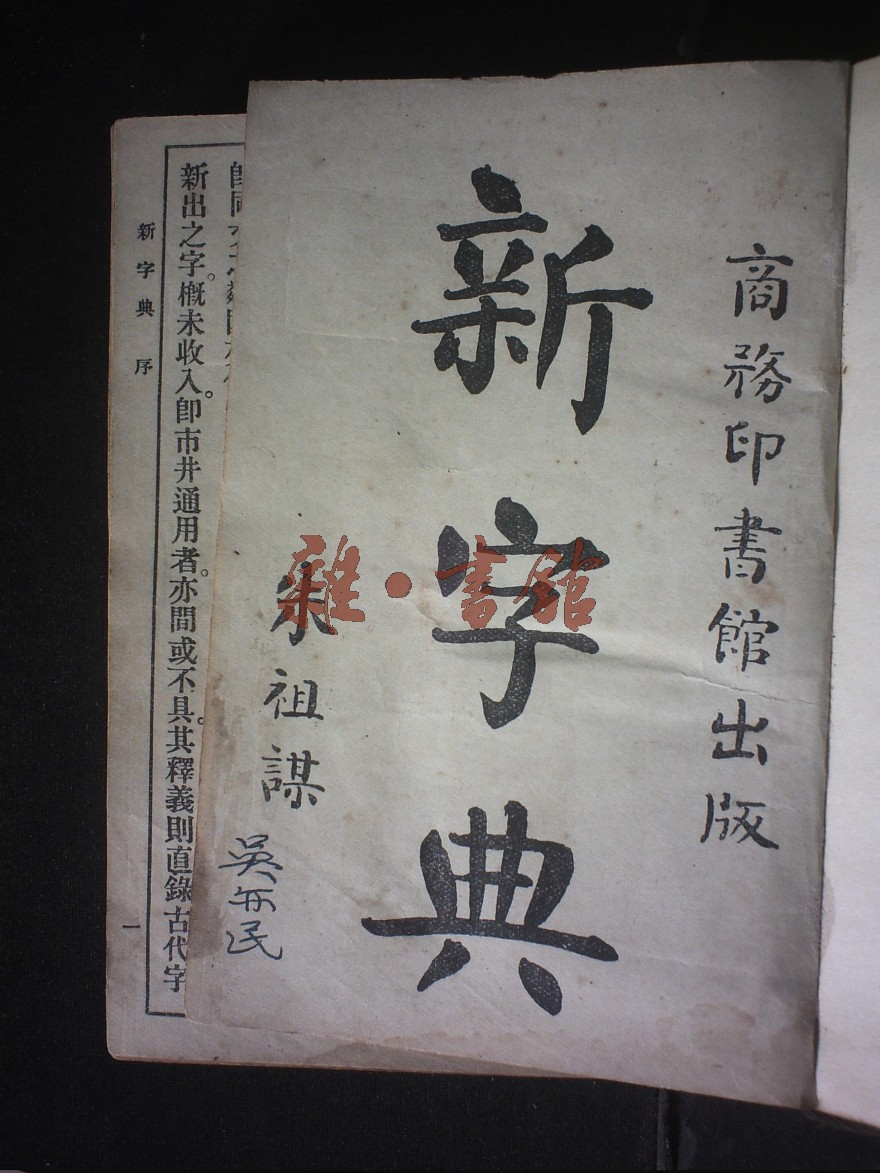 商務印書館出版
新字典
朱祖謀
吳
民
雜·書館
新出之字。概未收入。卽市井通用者。亦間或不具。其釋義則直錄古代字
新字典 序
一